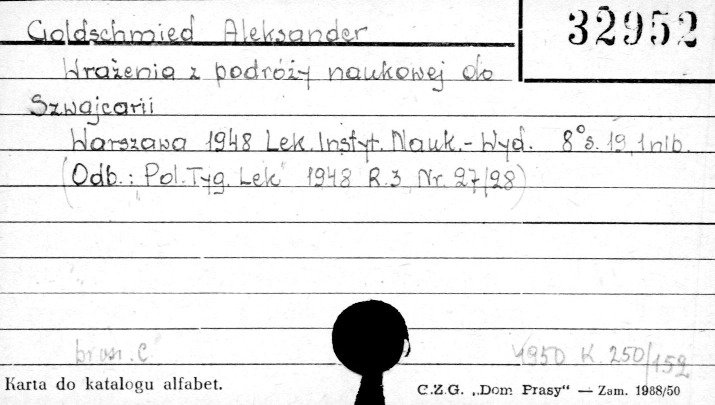 Goldschmied Aleksander
32952
Wrażenia z podróży naukowej do
Szwajcarii
Warszawa 1948 Lek. Instyt. Nauk.- Wyd. 8° s. 19, 1 nlb.
(Odb.: Pol. Tyg. Lek" 1948 R. 3 Nr. 27/28)
1950 K. 250/152
Karta do katalogu alfabet.
C.Z.G. „Dom Prasy" — Zam. 1988/50